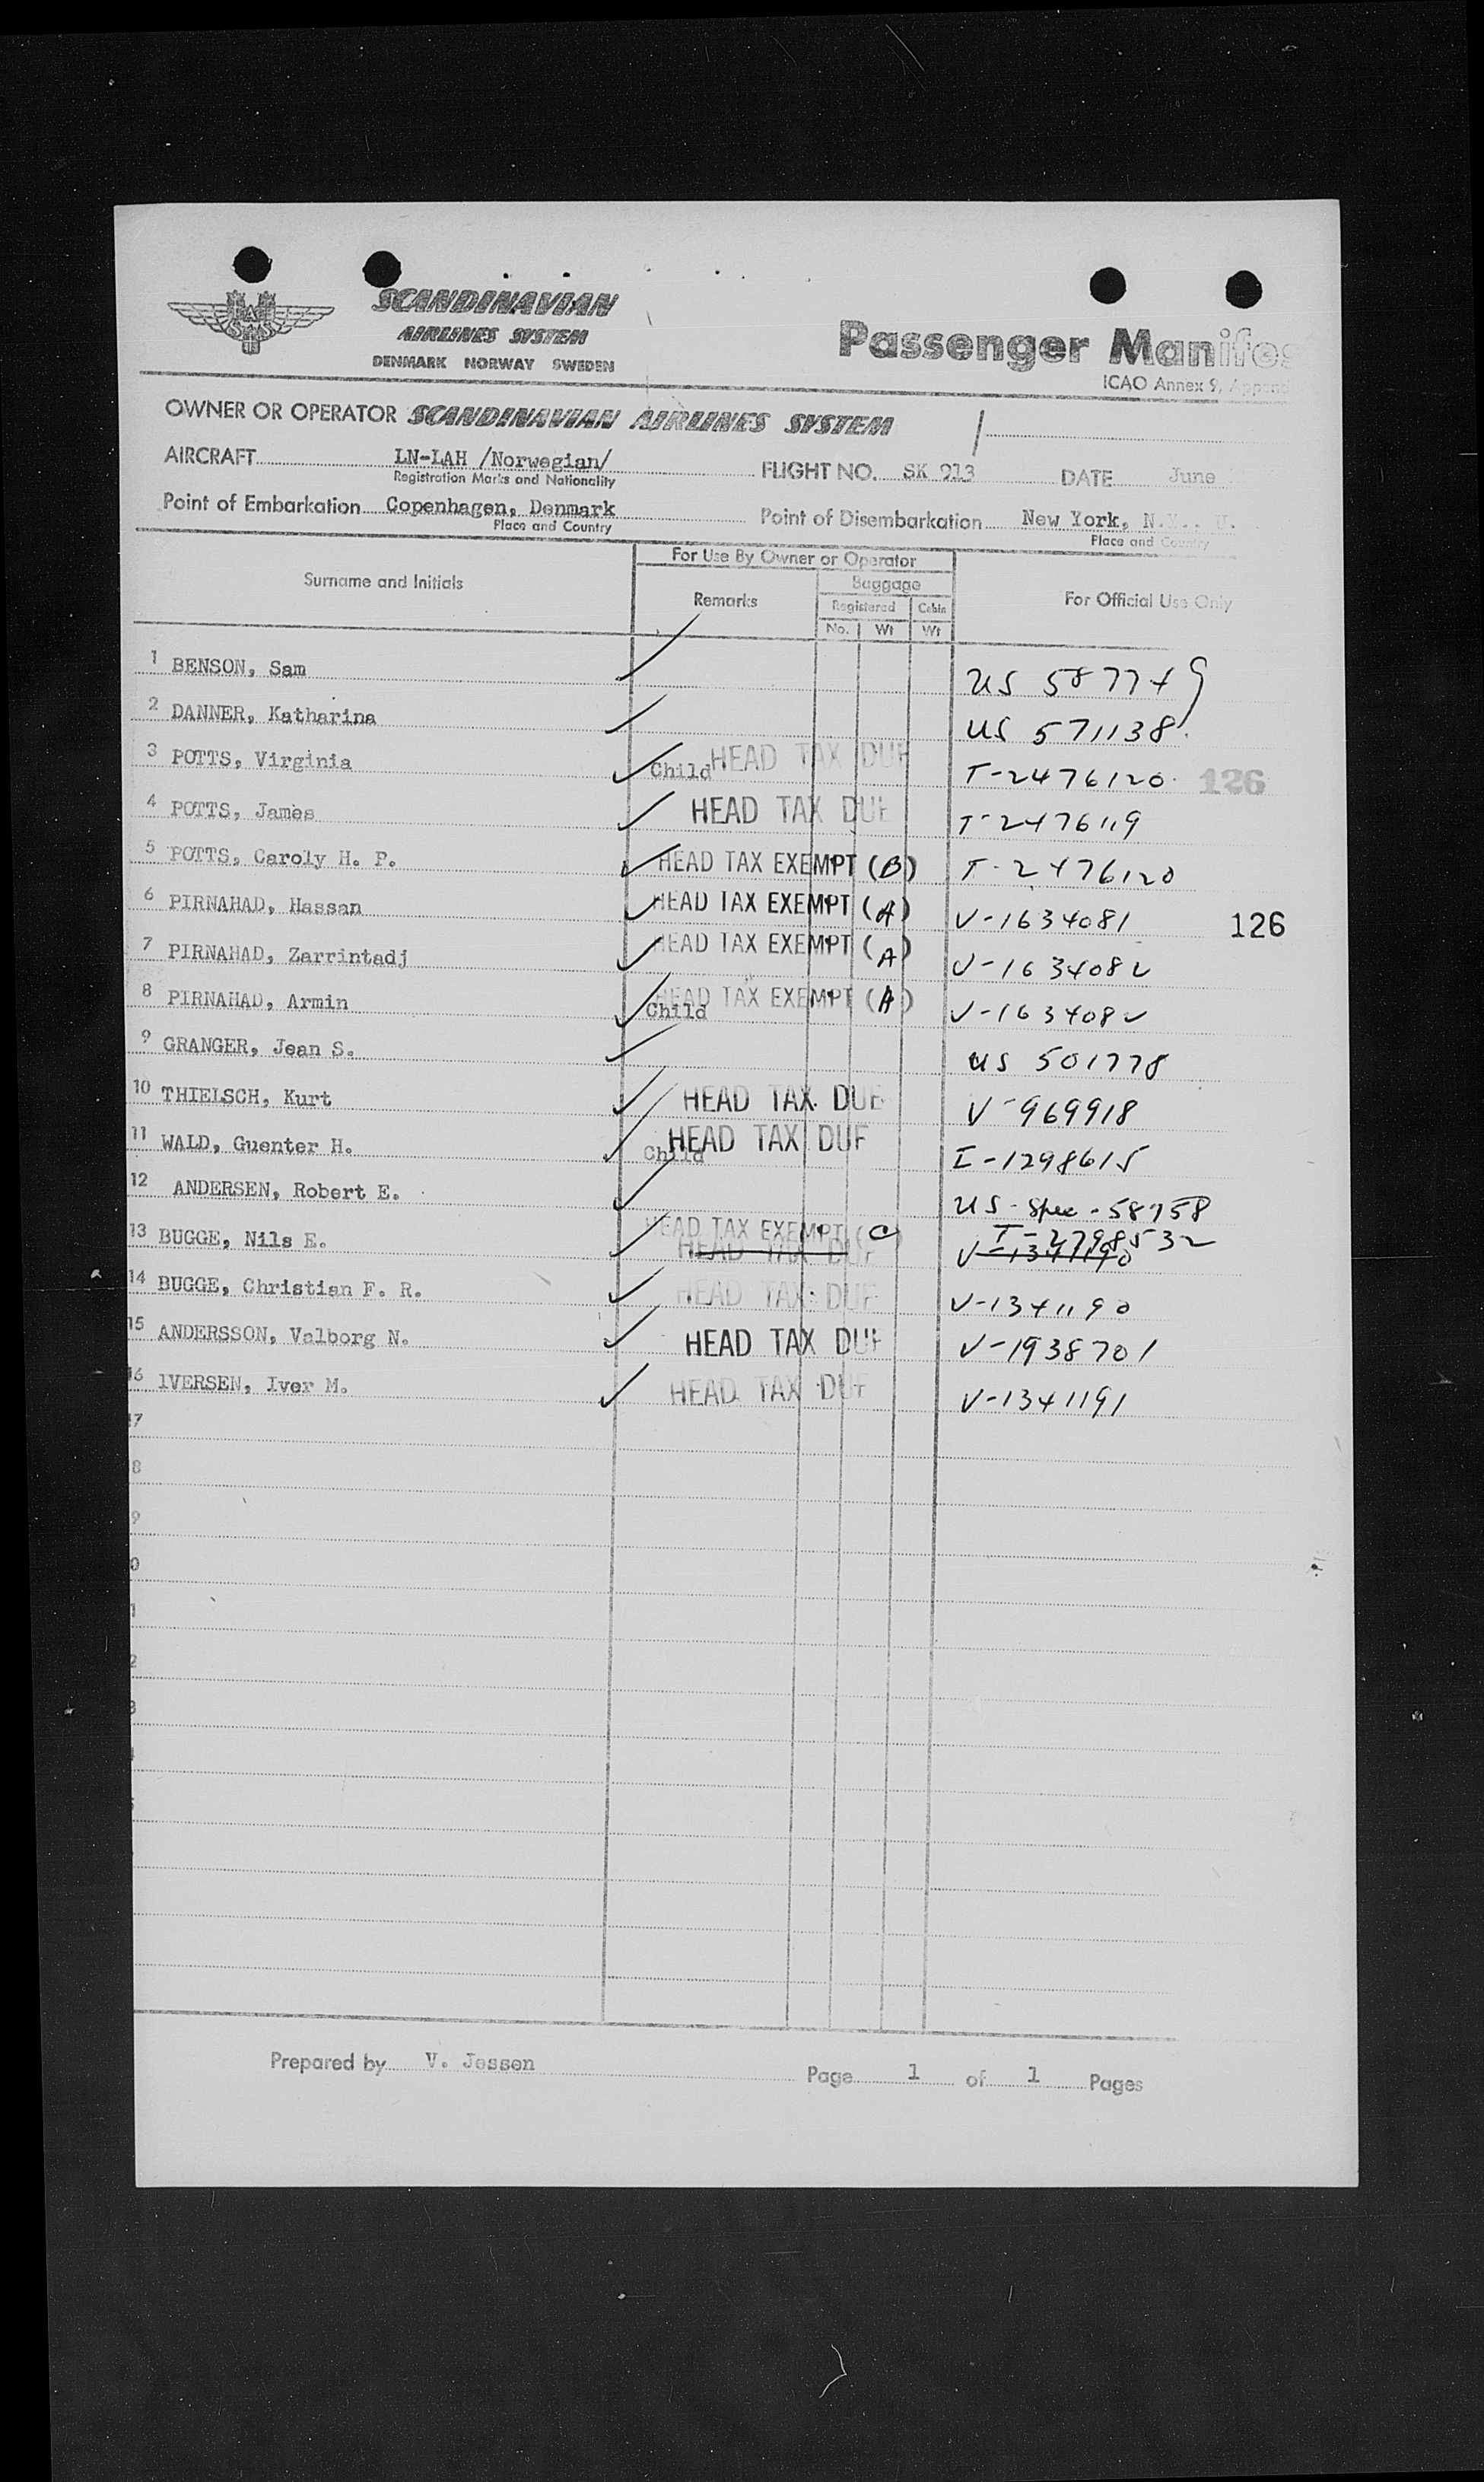 SCANDINAVIAN
AIRLINES SYSTEM
DENMARK NORWAY SWEDEN
SAS
Passenger Manifes
ICAO Annex 9, Append
OWNER OR OPERATOR SCANDINAVIAN AIRLINES SYSTEM
AIRCRAFT LN-LAH /Norwegian/ FLIGHT NO. SK 913 DATE June
Registration Marks and Nationality
Point of Embarkation Copenhagen, Denmark Point of Disembarkation New York, N.Y., U.
Place and Country Place and Country
For Use By Owner or Operator
Surname and Initials Remarks Baggage For Official Use Only
Registered Cabin
No. Wt Wt
1 BENSON, Sam US 587749
2 DANNER, Katharina US 571138
3 POTTS, Virginia Child HEAD TAX DUE T-2476120 126
4 POTTS, James HEAD TAX DUE T-2476119
5 POTTS, Caroly H. P. HEAD TAX EXEMPT (B) T-2476120
6 PIRNAHAD, Hassan HEAD TAX EXEMPT (A) V-1634081 126
7 PIRNAHAD, Zarrintadj HEAD TAX EXEMPT (A) V-1634082
8 PIRNAHAD, Armin Child HEAD TAX EXEMPT (A) V-1634082
9 GRANGER, Jean S. US 501778
10 THIELSCH, Kurt HEAD TAX DUE V-969918
11 WALD, Guenter H. Child HEAD TAX DUE I-1298615
12 ANDERSEN, Robert E. US-Spec-58758
13 BUGGE, Nils E. HEAD TAX EXEMPT (C) T-2798532
HEAD TAX DUE V-1341190
14 BUGGE, Christian F. R. HEAD TAX DUE V-1341190
15 ANDERSSON, Valborg N. HEAD TAX DUE V-1938701
16 IVERSEN, Iver M. HEAD TAX DUE V-1341191
17
8
9
0
1
2
3
Prepared by V. Jessen Page 1 of 1 Pages